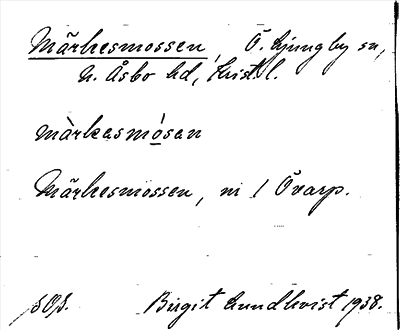 Märkesmossen, Ö. Ljungby sn,
N. Åsbo hd, Krist. l.
màrkasmósan
Märkesmossen, ni / Övarp.
Birgit Lundkvist 1938.